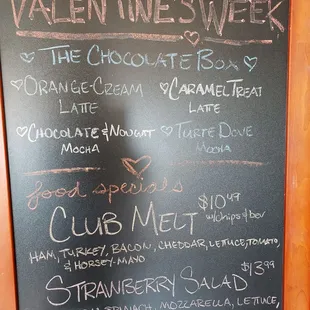 VALENTINES WEEK
THE CHOCOLATE BOX
ORANGE-CREAM LATTE
CARAMEL TREAT LATTE
CHOCOLATE & NOUGAT MOCHA
TURTE DOVE MOCHA
food specials
CLUB MELT $10.49
w/chips & bev
HAM, TURKEY, BACON, CHEDDAR, LETUCE, TOMATO,
& HORSEY-MAYO
STRAWBERRY SALAD $13.99
SPINACH, MOZZARELLA, LETUCE,